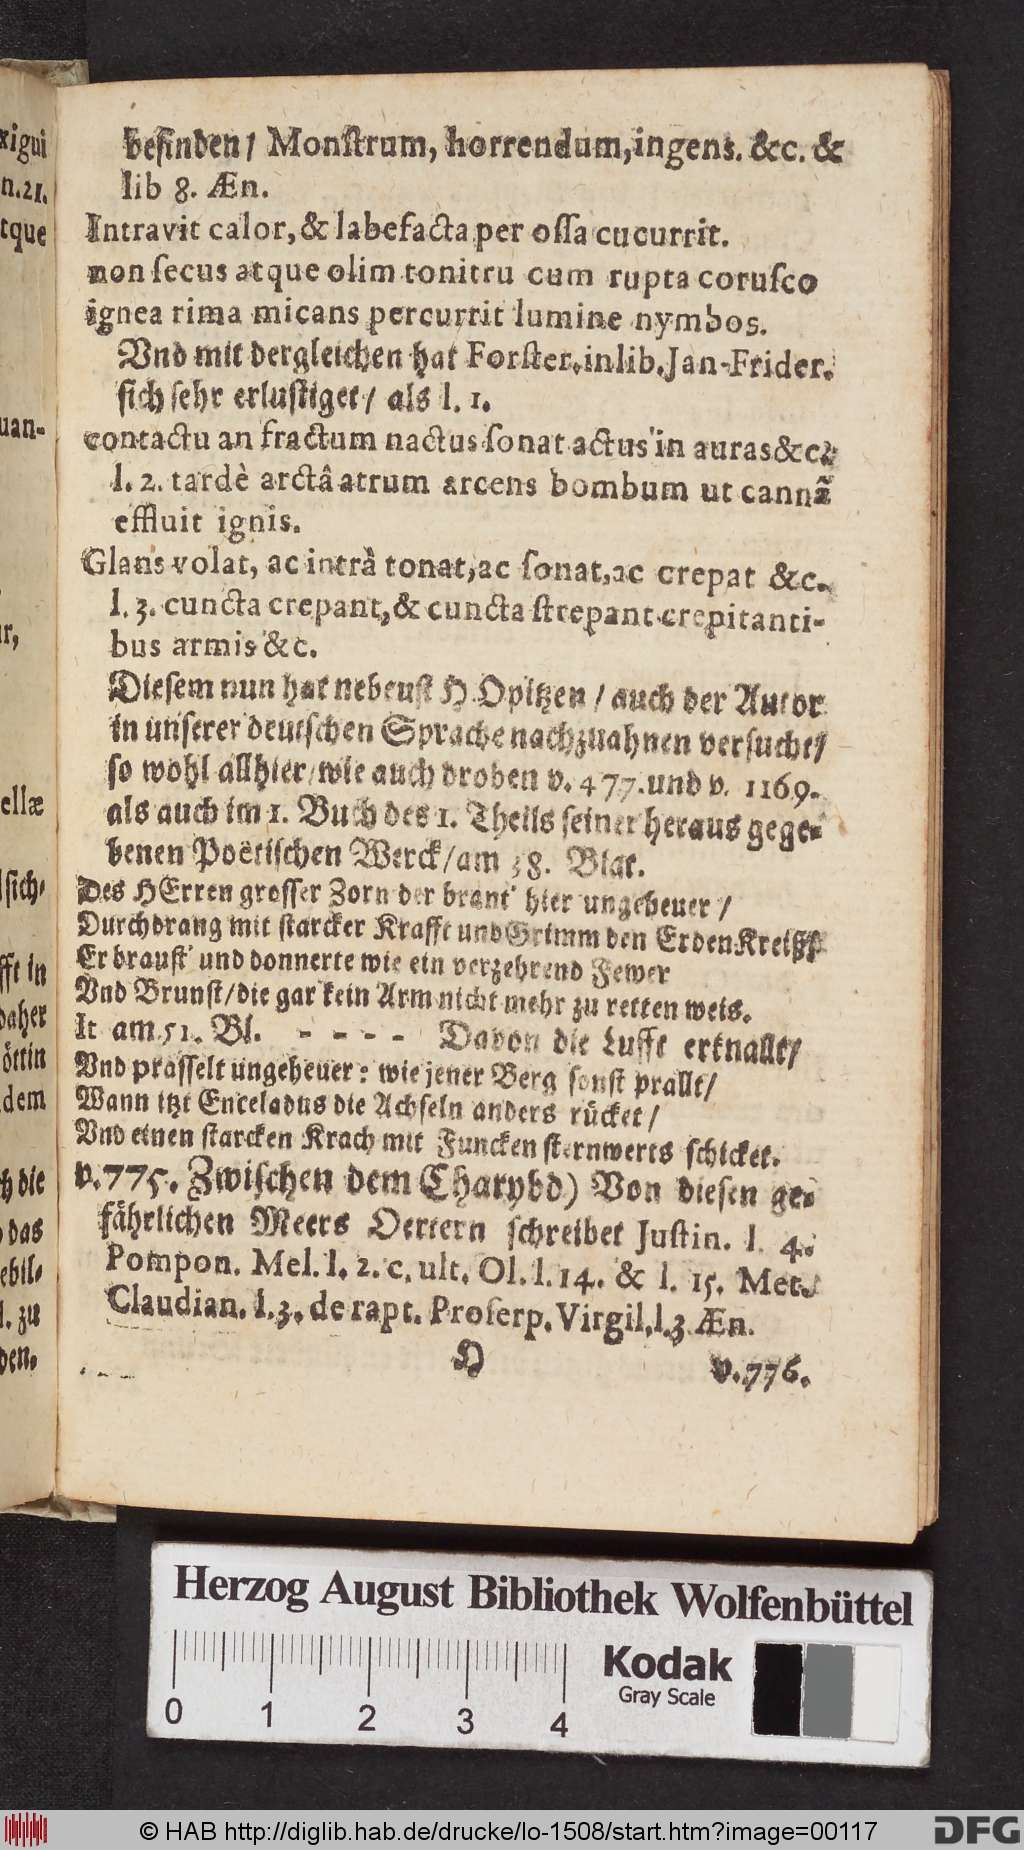 befinden / Monſtrum, horrendum, ingens. &c. &
lib 8. Æn.
Intravit calor, & labefacta per oſſa cucurrit.
non ſecus atque olim tonitru cum rupta coruſco
ignea rima micans percurrit lumine nymbos.
Vnd mit dergleichen hat Forſter. in lib. Jan-Frider.
ſich ſehr erluſtiget / als l. 1.
contactu an fractum nactus ſonat actus in auras &c.
l. 2. tardè arctâ atrum arcens bombum ut cannã
effluit ignis.
Glans volat, ac intrà tonat, ac ſonat, ac crepat &c.
l. 3. cuncta crepant, & cuncta ſtrepant crepitanti-
bus armis &c.
Dieſem nun hat nebenſt H. Opitzen / auch der Autor
in unſerer deutſchen Sprache nachzuahnen verſucht /
ſo wohl allhier / wie auch droben v. 477. und v. 1169.
als auch im 1. Buch des 1. Theils ſeiner heraus gege-
benen Poëtiſchen Werck / am 38. Blat.
Des HErren groſſer Zorn der brant' hier ungeheuer /
Durchdrang mit ſtarcker Krafft und Grimm den ErdenKreiß
Er brauſt' und donnerte wie ein verzehrend Fewer
Vnd Brunſt / die gar kein Arm nicht mehr zu retten weis.
It am 51. Bl. - - - - Davon die Lufft erknallt /
Vnd praſſelt ungeheuer: wie jener Berg ſonſt prallt /
Wann itzt Enceladus die Achſeln anders rücket /
Vnd einen ſtarcken Krach mit Funcken ſternwerts ſchicket.
v. 775. Zwiſchen dem Charybd) Von dieſen ge-
fährlichen Meers Oertern ſchreibet Juſtin. l. 4.
Pompon. Mel. l. 2. c. ult. Ol. l. 14. & l. 15. Met.
Claudian. l. 3. de rapt. Proſerp. Virgil. l. 3 Æn.
H v. 776.
xigui
n. 21.
tque
uan-
ellæ
ſich-
fft in
daher
öttin
dem
die
das
ebil-
l. zu
den.
Herzog August Bibliothek Wolfenbüttel
0 1 2 3 4
Kodak
Gray Scale
© HAB http://diglib.hab.de/drucke/lo-1508/start.htm?image=00117
DFG